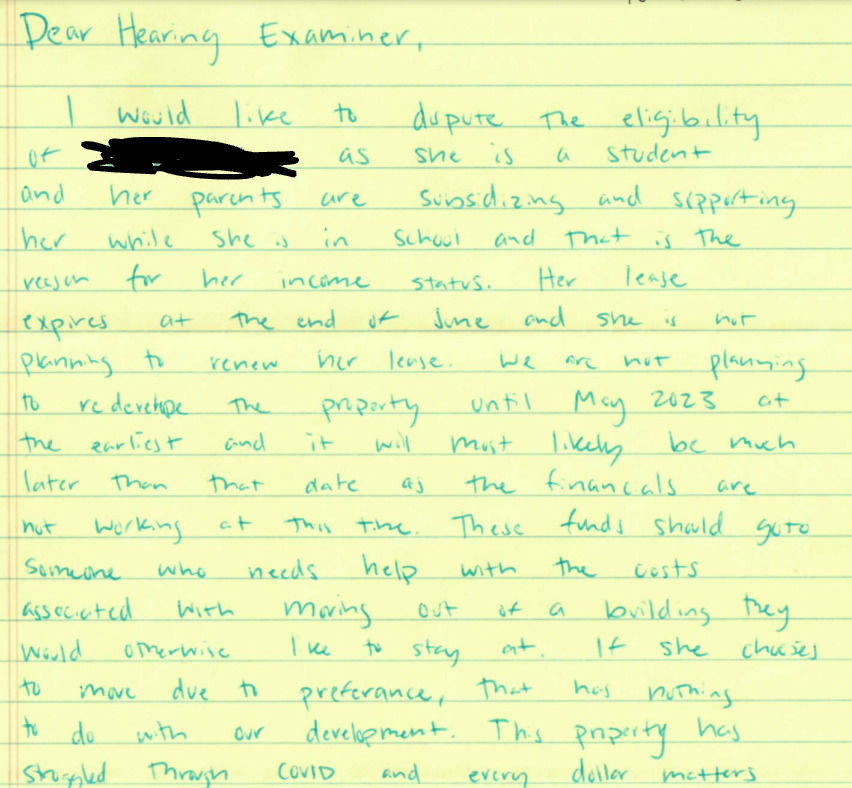 Dear Hearing Examiner,
I would like to dispute the eligibility
of as she is a student
and her parents are subsidizing and sipporting
her while she is in school and that is the
reason for her income status. Her lease
expires at the end of June and she is not
planning to renew her lease. We are not planning
to redevelope the property until May 2023 at
the earliest and it will most likely be much
later than that date as the financials are
not working at this time. These funds should go to
someone who needs help with the costs
associated with moving out of a building they
would otherwise like to stay at. If she chooses
to move due to preferance, that has nothing
to do with our development. This property has
struggled through COVID and every dollar matters